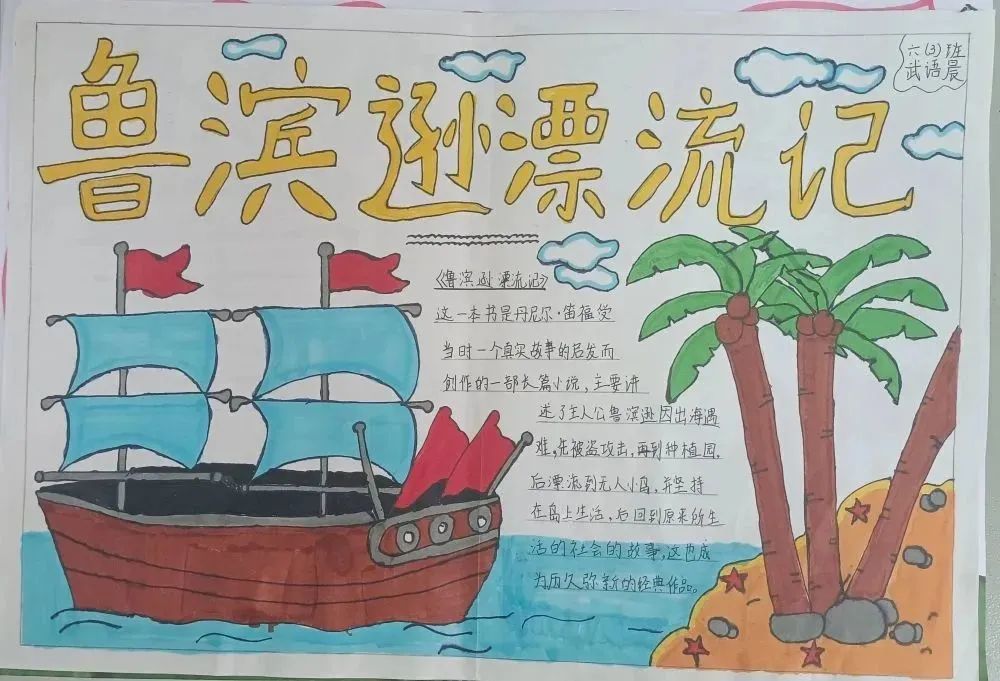 鲁滨逊漂流记
六(3)班
武语晨
《鲁滨逊漂流记》
这一本书是丹尼尔·笛福受
当时一个真实故事的启发而
创作的一部长篇小说,主要讲
述了主人公鲁滨逊因出海遇
难,先被盗攻击,再到种植园,
后漂流到无人小岛,并坚持
在岛上生活,后回到原来所生
活的社会的故事,这也成
为历久弥新的经典作品。